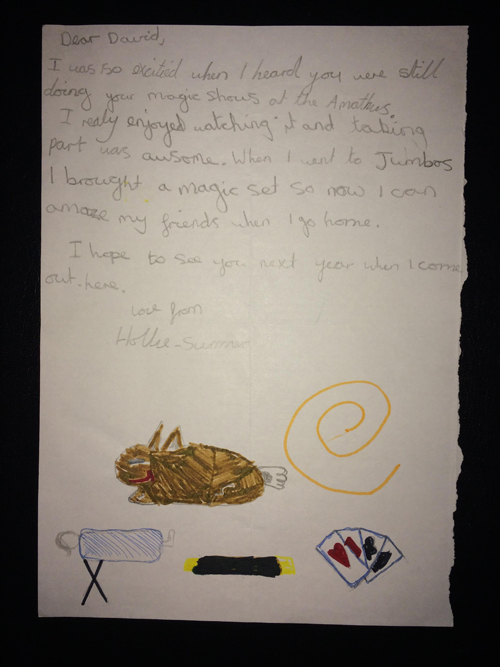 Dear David,
I was so excited when I heard you were still
doing your magic shows at the Amathus.
I realy enjoyed watching it and taking
part was awsome. When I went to Jumbos
I brought a magic set so now I can
amaze my friends when I go home.
I hope to see you next year when I come
out here.
love from
Hollie-Summer